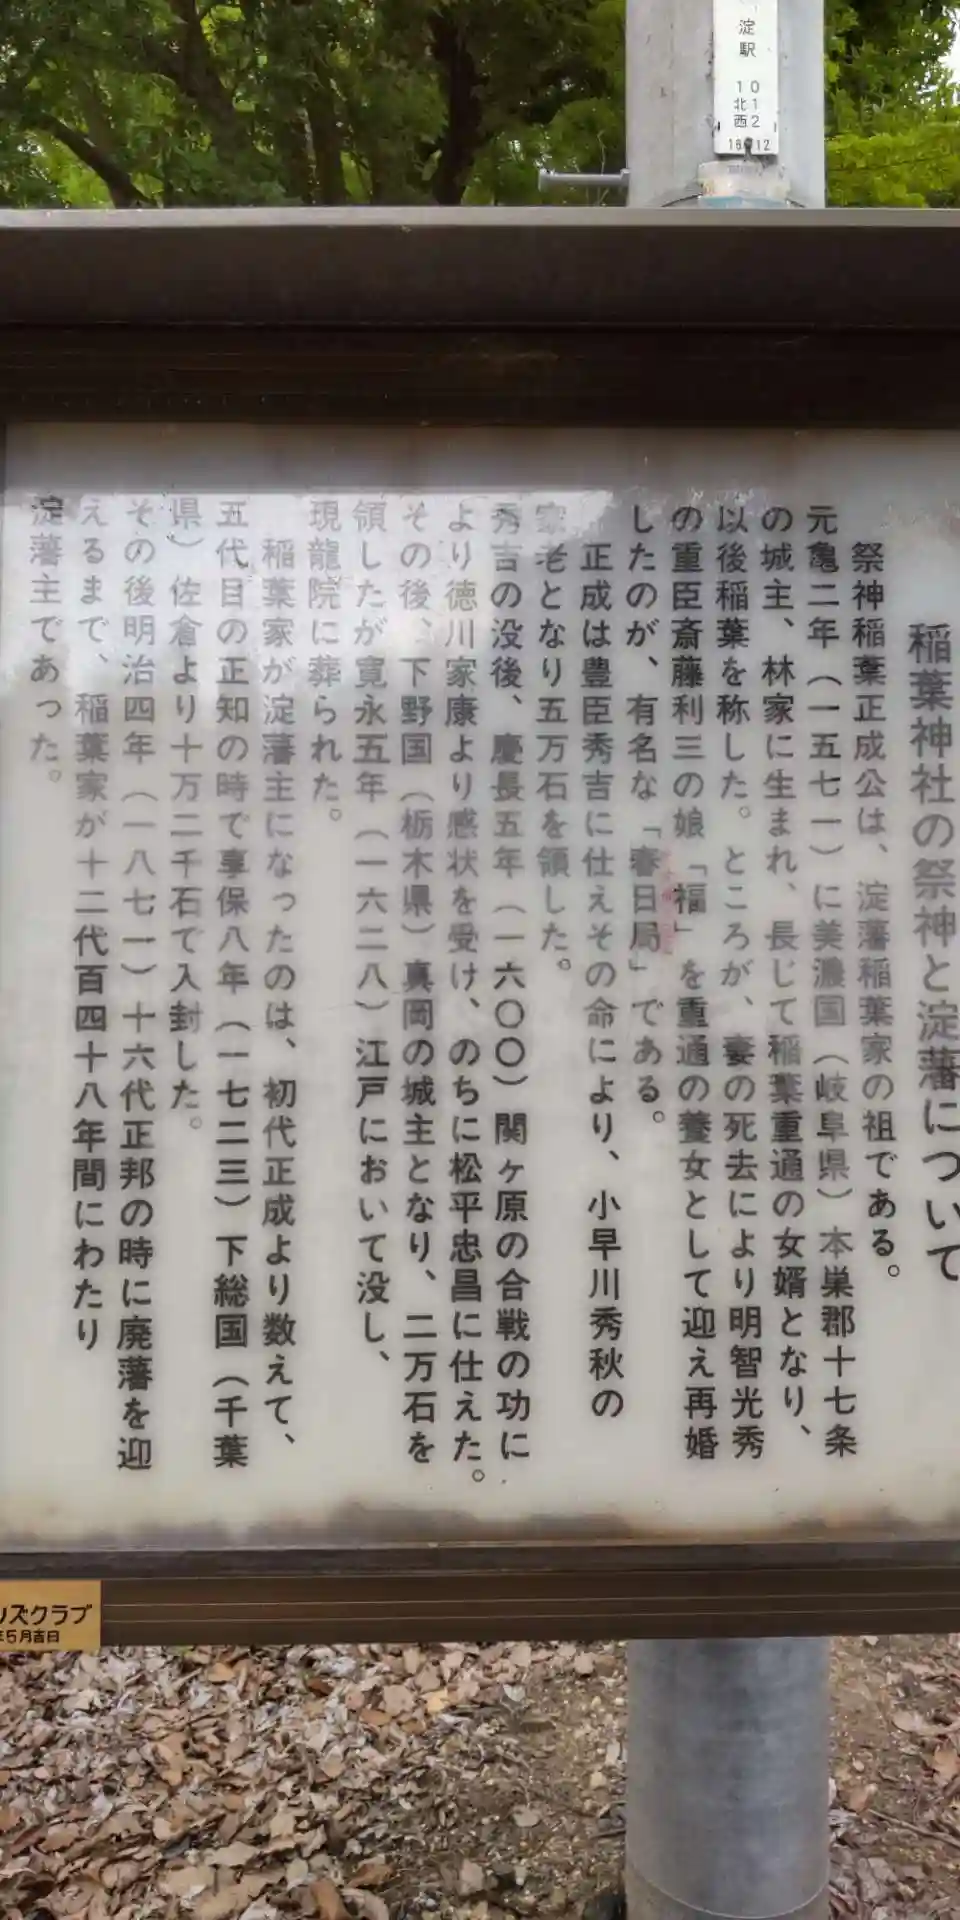 淀駅
10
北1
西2
稲葉神社の祭神と淀藩について
祭神稲葉正成公は、淀藩稲葉家の祖である。
元亀二年（一五七一）に美濃国（岐阜県）本巣郡十七条
の城主、林家に生まれ、長じて稲葉重通の女婿となり、
以後稲葉を称した。ところが、妻の死去により明智光秀
の重臣斎藤利三の娘「福」を重通の養女として迎え再婚
したのが、有名な「春日局」である。
正成は豊臣秀吉に仕えその命により、小早川秀秋の
家老となり五万石を領した。
秀吉の没後、慶長五年（一六〇〇）関ヶ原の合戦の功に
より徳川家康より感状を受け、のちに松平忠昌に仕えた。
その後、下野国（栃木県）真岡の城主となり、二万石を
領したが寛永五年（一六二八）江戸において没し、
現龍院に葬られた。
稲葉家が淀藩主になったのは、初代正成より数えて、
五代目の正知の時で享保八年（一七二三）下総国（千葉
県）佐倉より十万二千石で入封した。
その後明治四年（一八七一）十六代正邦の時に廃藩を迎
えるまで、稲葉家が十二代百四十八年間にわたり
淀藩主であった。
ズクラブ
年5月吉日